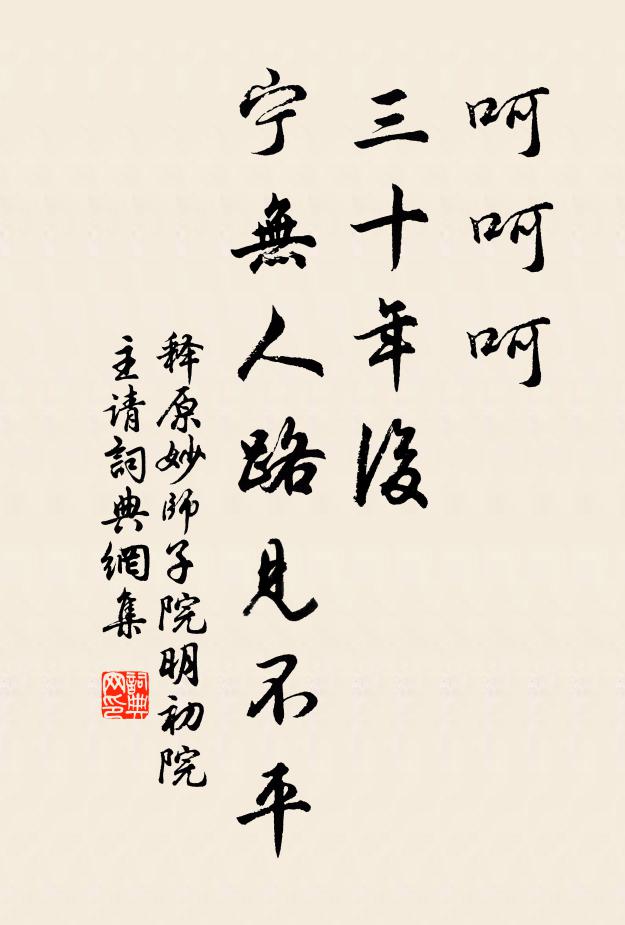 呵呵呵
三十年後
宁無人路見不平
释原妙師子院明初院
主请詞典網集
詞典
网印